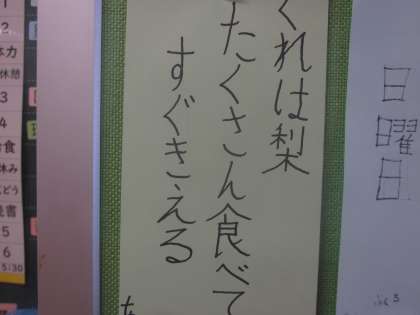 くれは梨
たくさん食べて
すぐきえる
日曜日
ふくろ
1
2
体力
休憩
3
4
給食
休み
読書
5
6
5:30